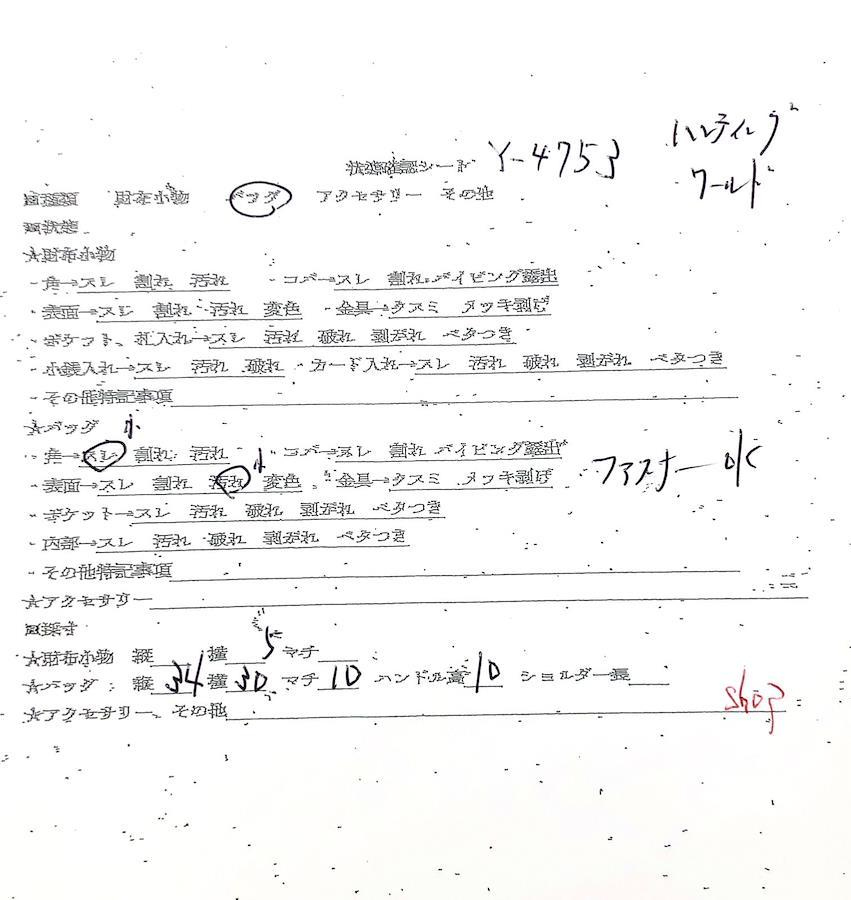 状態確認シート Y-4753 ハンティング
ワールド
■種類 財布小物 バッグ アクセサリー その他
■状態
☆財布小物
・角→スレ 割れ 汚れ ・コバ→スレ 割れ パイピング露出
・表面→スレ 割れ 汚れ 変色 ・金具→クスミ メッキ剥げ
・ポケット、札入れ→スレ 汚れ 破れ 剥がれ ベタつき
・小銭入れ→スレ 汚れ 破れ ・カード入れ→スレ 汚れ 破れ 剥がれ ベタつき
・その他特記事項
☆バッグ 小
・角→スレ 割れ 汚れ 小 ・コバ→スレ 割れ パイピング露出
・表面→スレ 割れ 汚れ 変色 ・金具→クスミ メッキ剥げ ファスナー OK
・ポケット→スレ 汚れ 破れ 剥がれ ベタつき
・内部→スレ 汚れ 破れ 剥がれ ベタつき
・その他特記事項
☆アクセサリー
■採寸
☆財布小物 縦 横 5 マチ
☆バッグ: 縦 34 横 30 マチ 10 ハンドル高 10 ショルダー長
☆アクセサリー、その他 shop